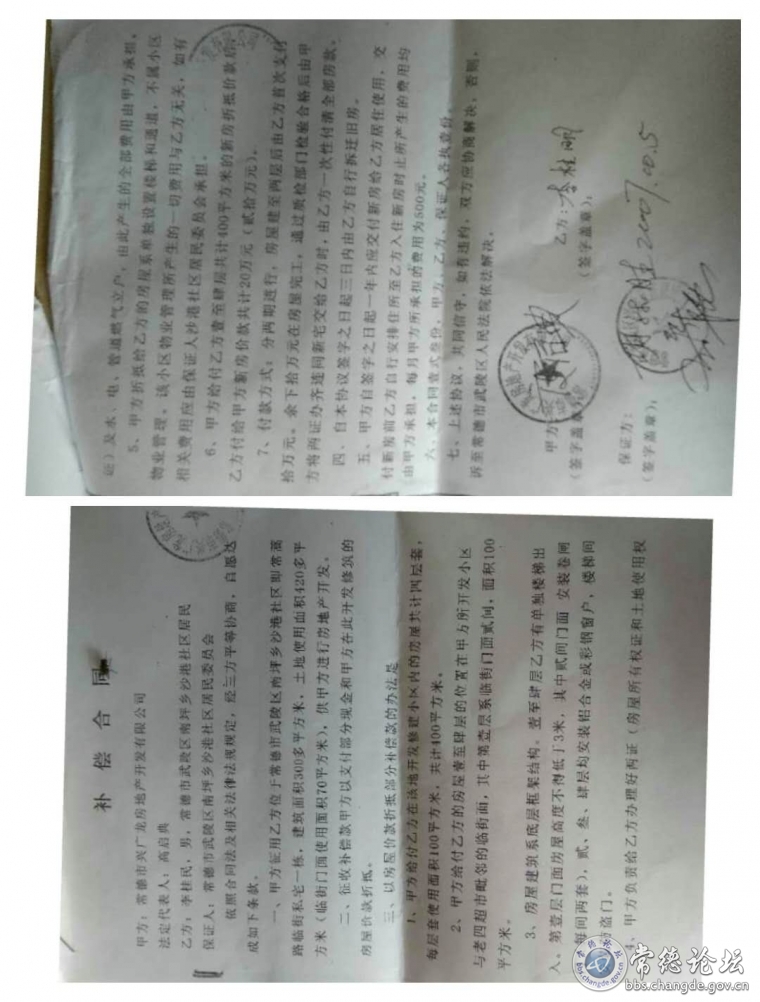 补偿合同
甲方：常德市兴广龙房地产开发有限公司
法定代表人：高启典
乙方：李桂民，男，常德市武陵区南坪乡沙港社区居民
保证人：常德市武陵区南坪乡沙港社区居民委员会
依照合同法及相关法律法规规定，经三方平等协商，自愿达
成如下条款。
一、甲方征用乙方位于常德市武陵区南坪乡沙港社区即常蒿
路临街私宅一栋，建筑面积300多平方米，土地使用面积420多平
方米（临街门面使用面积70平方米），供甲方进行房地产开发。
二、征收补偿款甲方以支付部分现金和甲方在此开发修筑的
房屋价款折抵。
三、以房屋价款折抵部分补偿款的办法是
1、甲方给付乙方在该地开发修建小区内的房屋共计四层套，
每层套使用面积100平方米，共计400平方米。
2、甲方给付乙方的房屋壹至肆层的位置在甲方所开发小区
与老四超市毗邻的临街面，其中第壹层系临街门面贰间，面积100
平方米。
3、房屋建筑系底层框架结构。壹至肆层乙方有单独楼梯出
入。第壹层门面房屋高度不得低于3米，其中贰间门面 安装卷闸
每间两套），贰、叁、肆层均安装铝合金或彩钢窗户，楼梯间
防盗门。
4、甲方负责给乙方办理好两证（房屋所有权证和土地使用权
证）及水、电、管道燃气立户，由此产生的全部费用由甲方承担。
5、甲方折抵给乙方的房屋系单独设置楼梯和通道，不属小区
物业管理，该小区物业管理所产生的一切费用与乙方无关，如有
相关费用应由保证人沙港社区居民委员会承担。
6、甲方给付乙方壹至肆层共计400平方米的新房折抵价款后，
乙方付给甲方新房价款共计20万元（贰拾万元）。
7、付款方式：分两期进行，房屋建至两层后由乙方首次支付
拾万元。余下拾万元在房屋完工，通过质检部门检验合格后由甲
方将两证办齐连同新宅交给乙方时，由乙方一次性付清全部房款。
四、自本协议签字之日起三日内由乙方自行拆迁旧房。
五、甲方自签字之日起一年内应交付新房给乙方居住使用，交
付新房前乙方自行安排住所至乙方入住新房时止所产生的费用均
由甲方承担，每月甲方所承担的费用为500元。
六、本合同壹式叁份，甲方、乙方、保证人各执壹份。
七、上述协议，共同信守，如有违约，双方应协商解决，否则，
诉至常德市武陵区人民法院依法解决。
甲方：
（签字盖章）
乙方：李桂明
（签字盖章）：
保证方：
（签字盖章）：
2007.10.5
常德论坛
bbs.changde.gov.cn